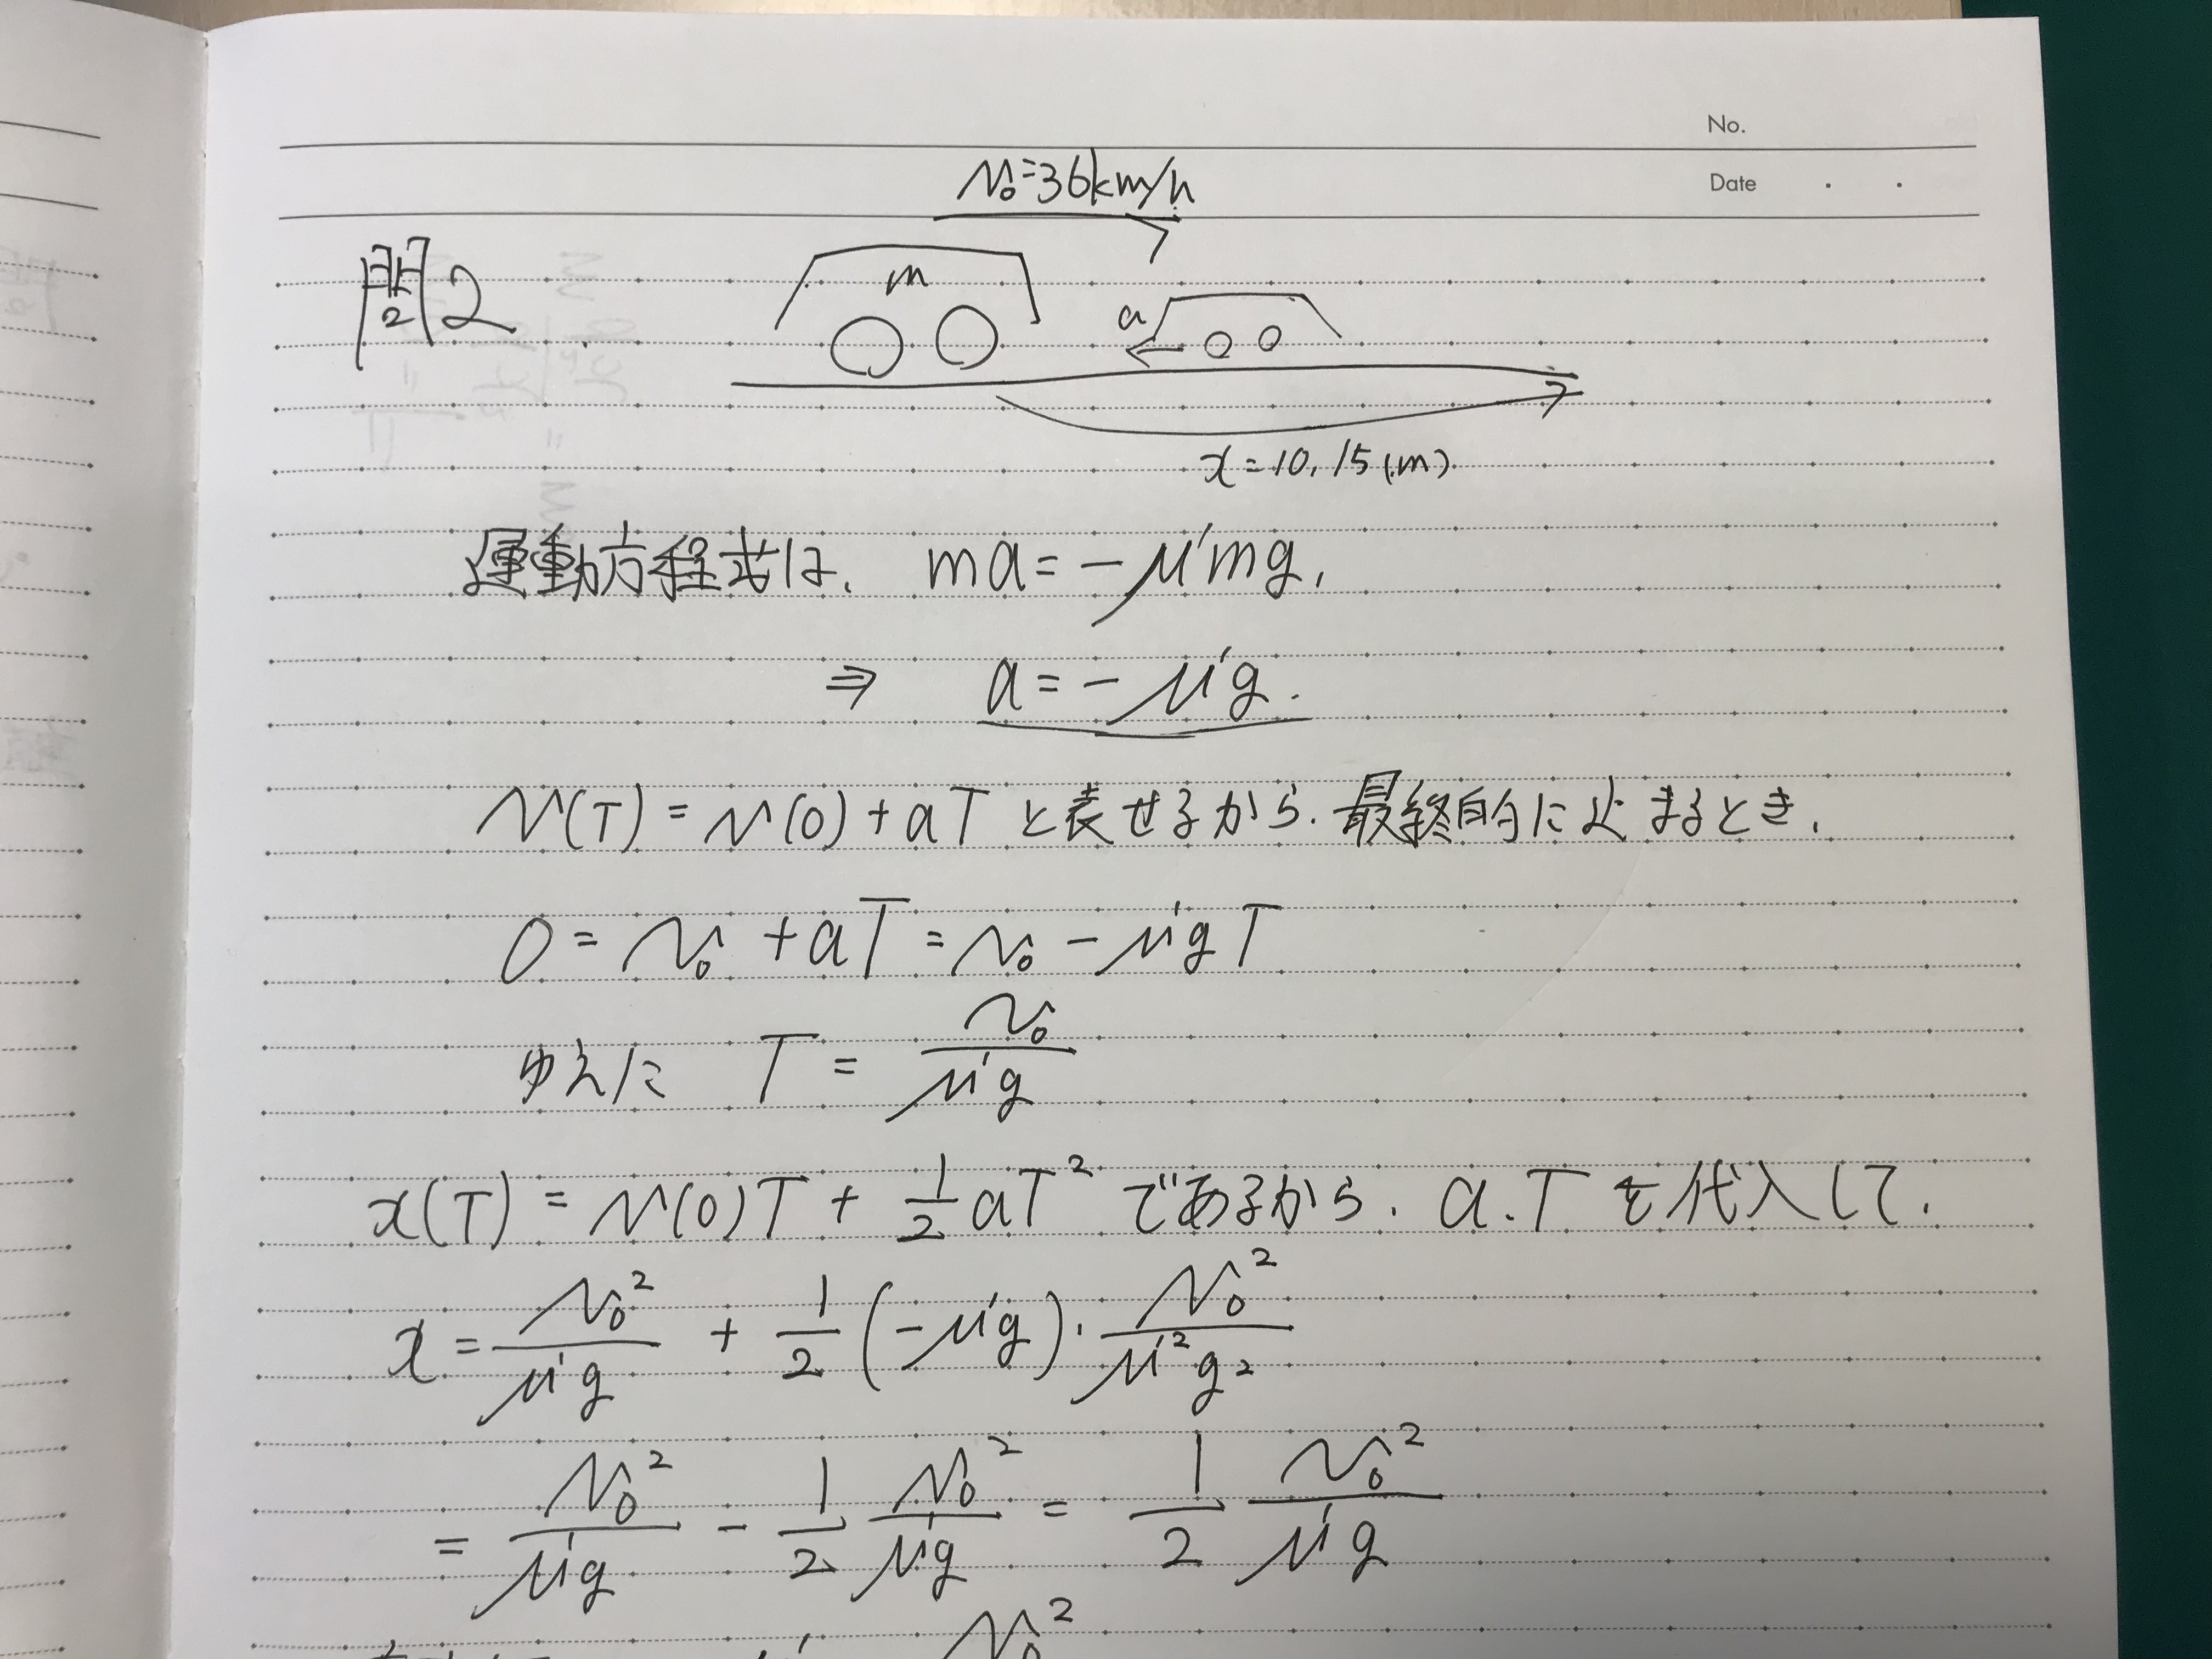 No.
Date
v₀=36km/h
問2
m
a
x=10.15(m)
運動方程式は、 ma=-μ'mg,
⇒ a=-μ'g.
v(T)=v(0)+aT と表せるから、最終的に止まるとき、
0=v₀+aT=v₀-μ'gT
ゆえに T=v₀/μ'g
x(T)=v(0)T+1/2aT² であるから、a.Tを代入して、
x=v₀²/μ'g+1/2(-μ'g)・v₀²/μ'²g²
=v₀²/μ'g-1/2 v₀²/μ'g=1/2 v₀²/μ'g
v₀²